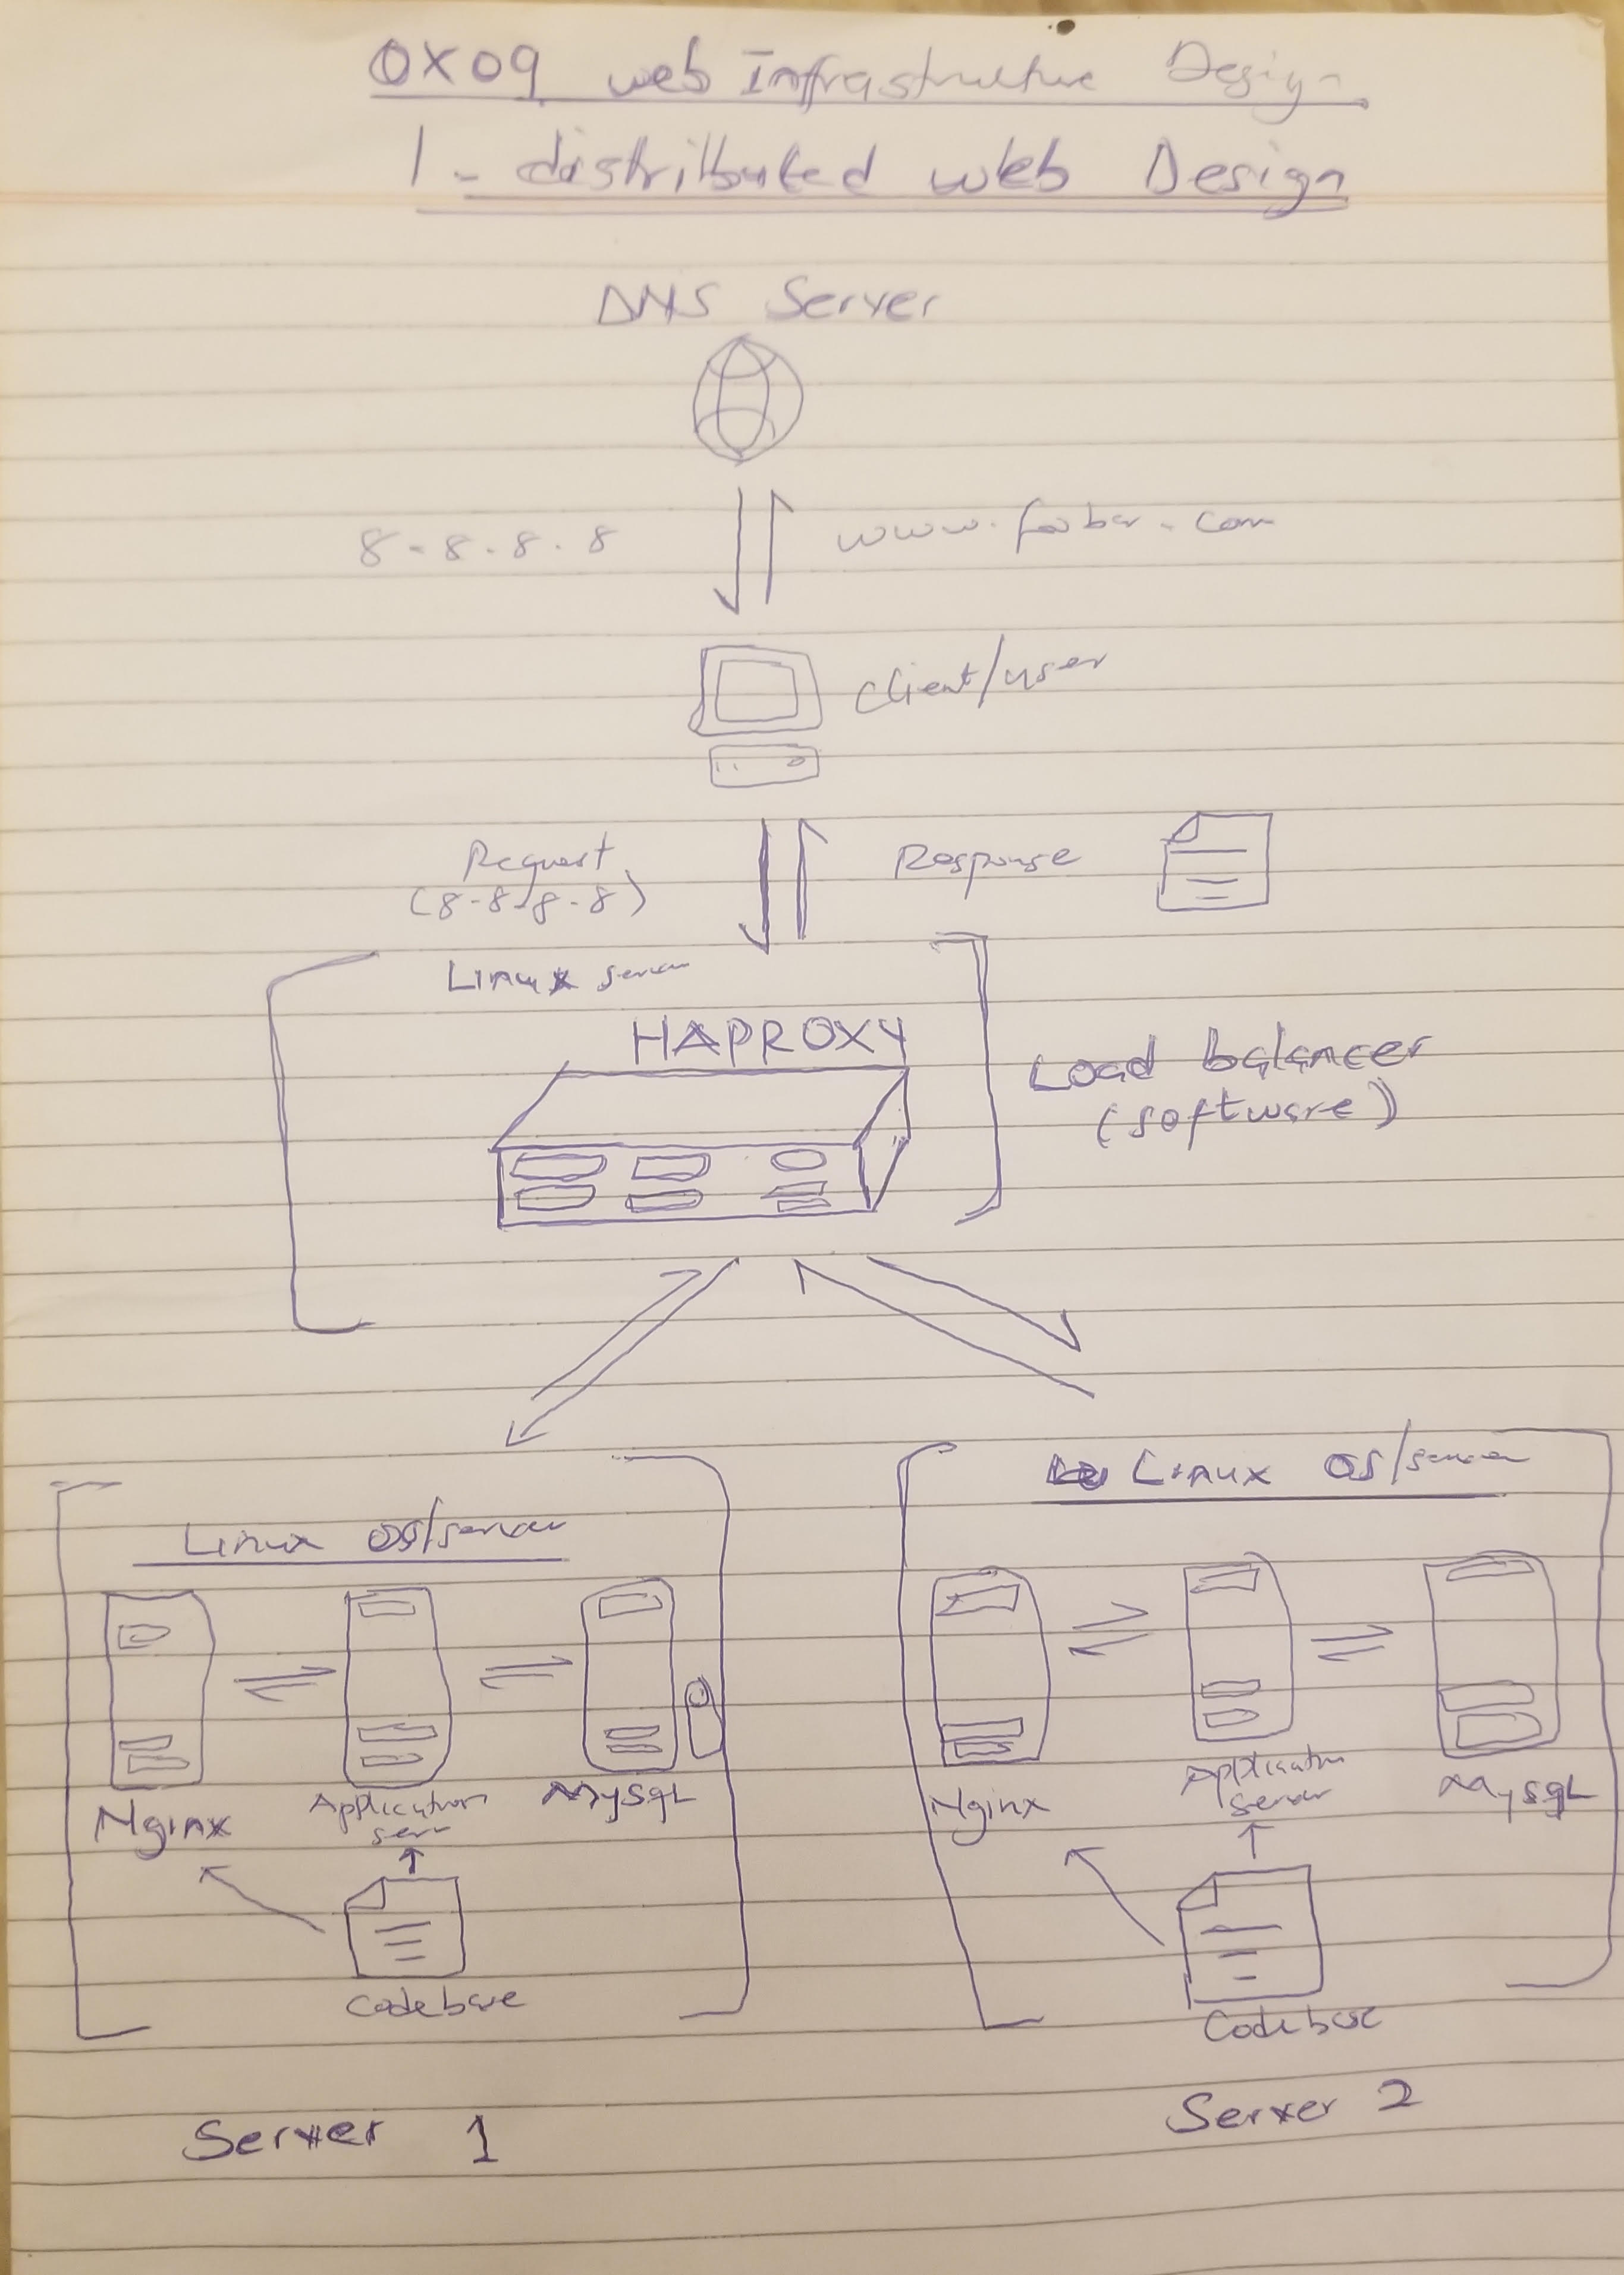 0X09 web Infrastructure Design
1- distributed web Design
DNS Server
8.8.8.8
www.foobar.com
client/user
Request
(8.8.8.8)
Response
Linux server
HAPROXY
Load balancer
(software)
Linux OS/server
Nginx
Application
serr
MySQL
Codebase
Server 1
Linux OS/server
Nginx
Application
server
MySQL
Codebase
Server 2